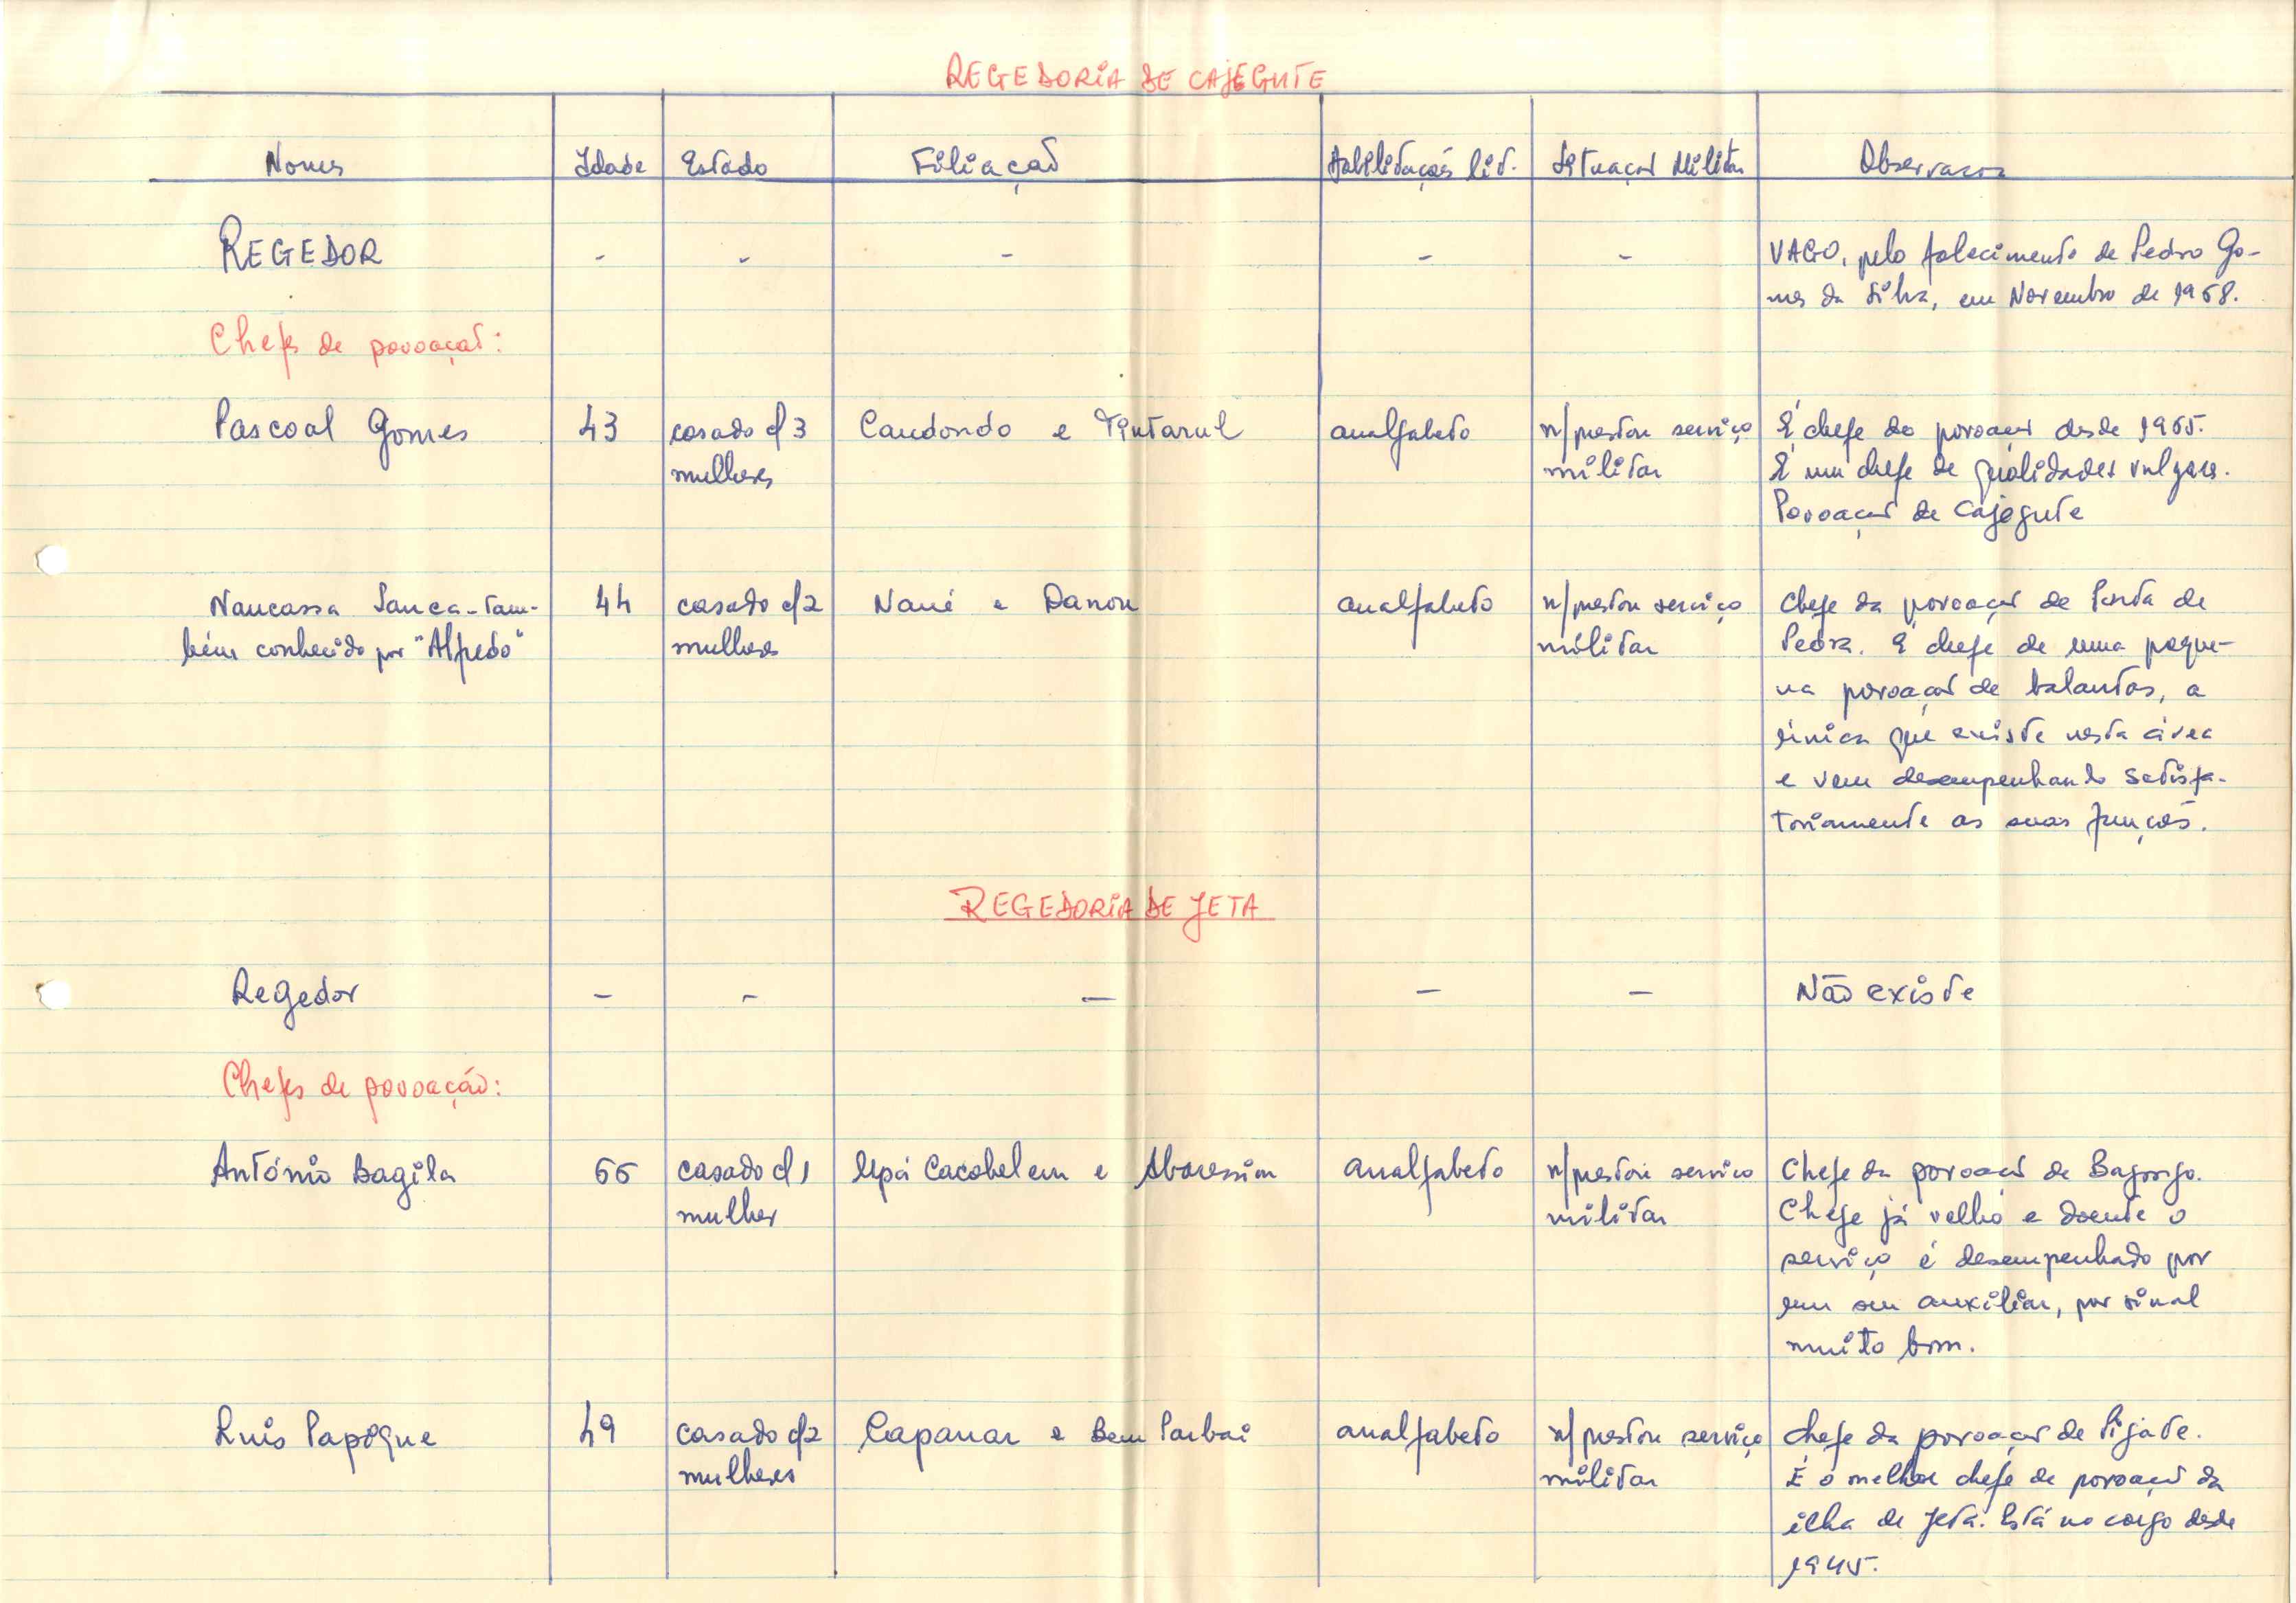 REGEDORIA DE CAJEGUTE
Nomes Idade Estado Filiação Habilitações lit. Situação Militar Observações
REGEDOR - - - - - VAGO, pelo falecimento de Pedro Go-
mes da Silva, em Novembro de 1968.
Chefes de povoação:
Pascoal Gomes 43 casado c/3 Caudondo e Tintarul analfabeto n/prestou serviço É chefe da povoação desde 1965.
mulheres militar É um chefe de qualidades vulgares.
Povoação de Cajegute
Naucassa Sanca - tam- 44 casado c/2 Naué e Danou analfabeto n/prestou serviço Chefe da povoação de Ponta de
bém conhecido por "Alfredo" mulheres militar Pedra. É chefe de uma peque-
na povoação de balantas, a
única que existe nesta área
e vem desempenhando satisfa-
toriamente as suas funções.
REGEDORIA DE JETA
Regedor - - - - - Não existe
Chefes de povoação:
António Bagila 66 casado c/1 Upá Cacobelem e analfabeto n/prestou serviço Chefe da povoação de
mulher militar Chefe já velho e doente o
serviço é desempenhado por
um seu auxiliar, por sinal
muito bom.
Luis Papique 49 casado c/2 Capanar e Bem Parbai analfabeto n/prestou serviço Chefe da povoação de Pijate.
mulheres militar É o melhor chefe de povoação da
ilha de Jeta. Está no cargo desde
1945.